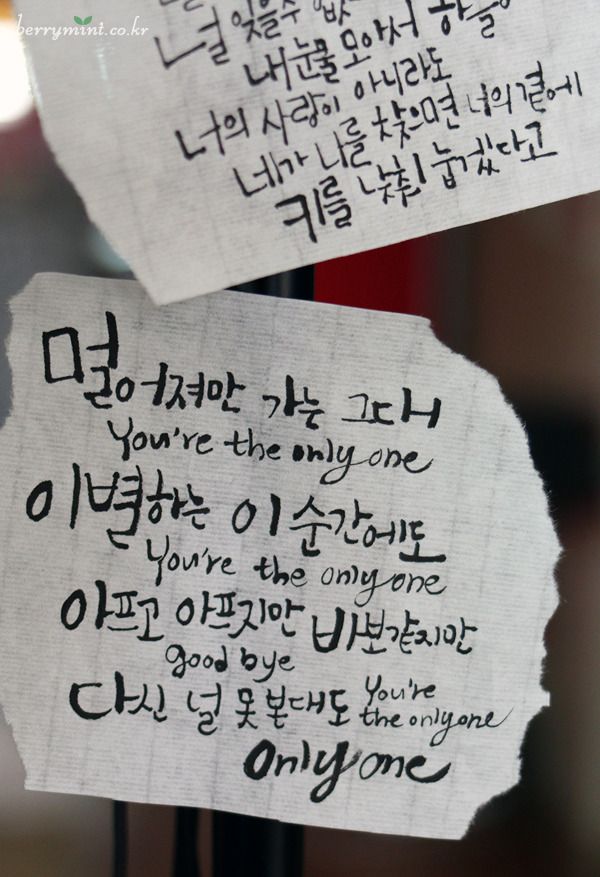 berrymint.co.kr
널 잊을수 없
내눈물 모아서 하늘
너의 사랑이 아니라도
네가 나를 찾으면 너의 곁에
키를 낮춰 눕겠다고
멀어져만 가는 그대
You're the only one
이별하는 이 순간에도
You're the only one
아프고 아프지만 바보같지만
good bye
다신 널 못 본대도 You're
the only one
Only one